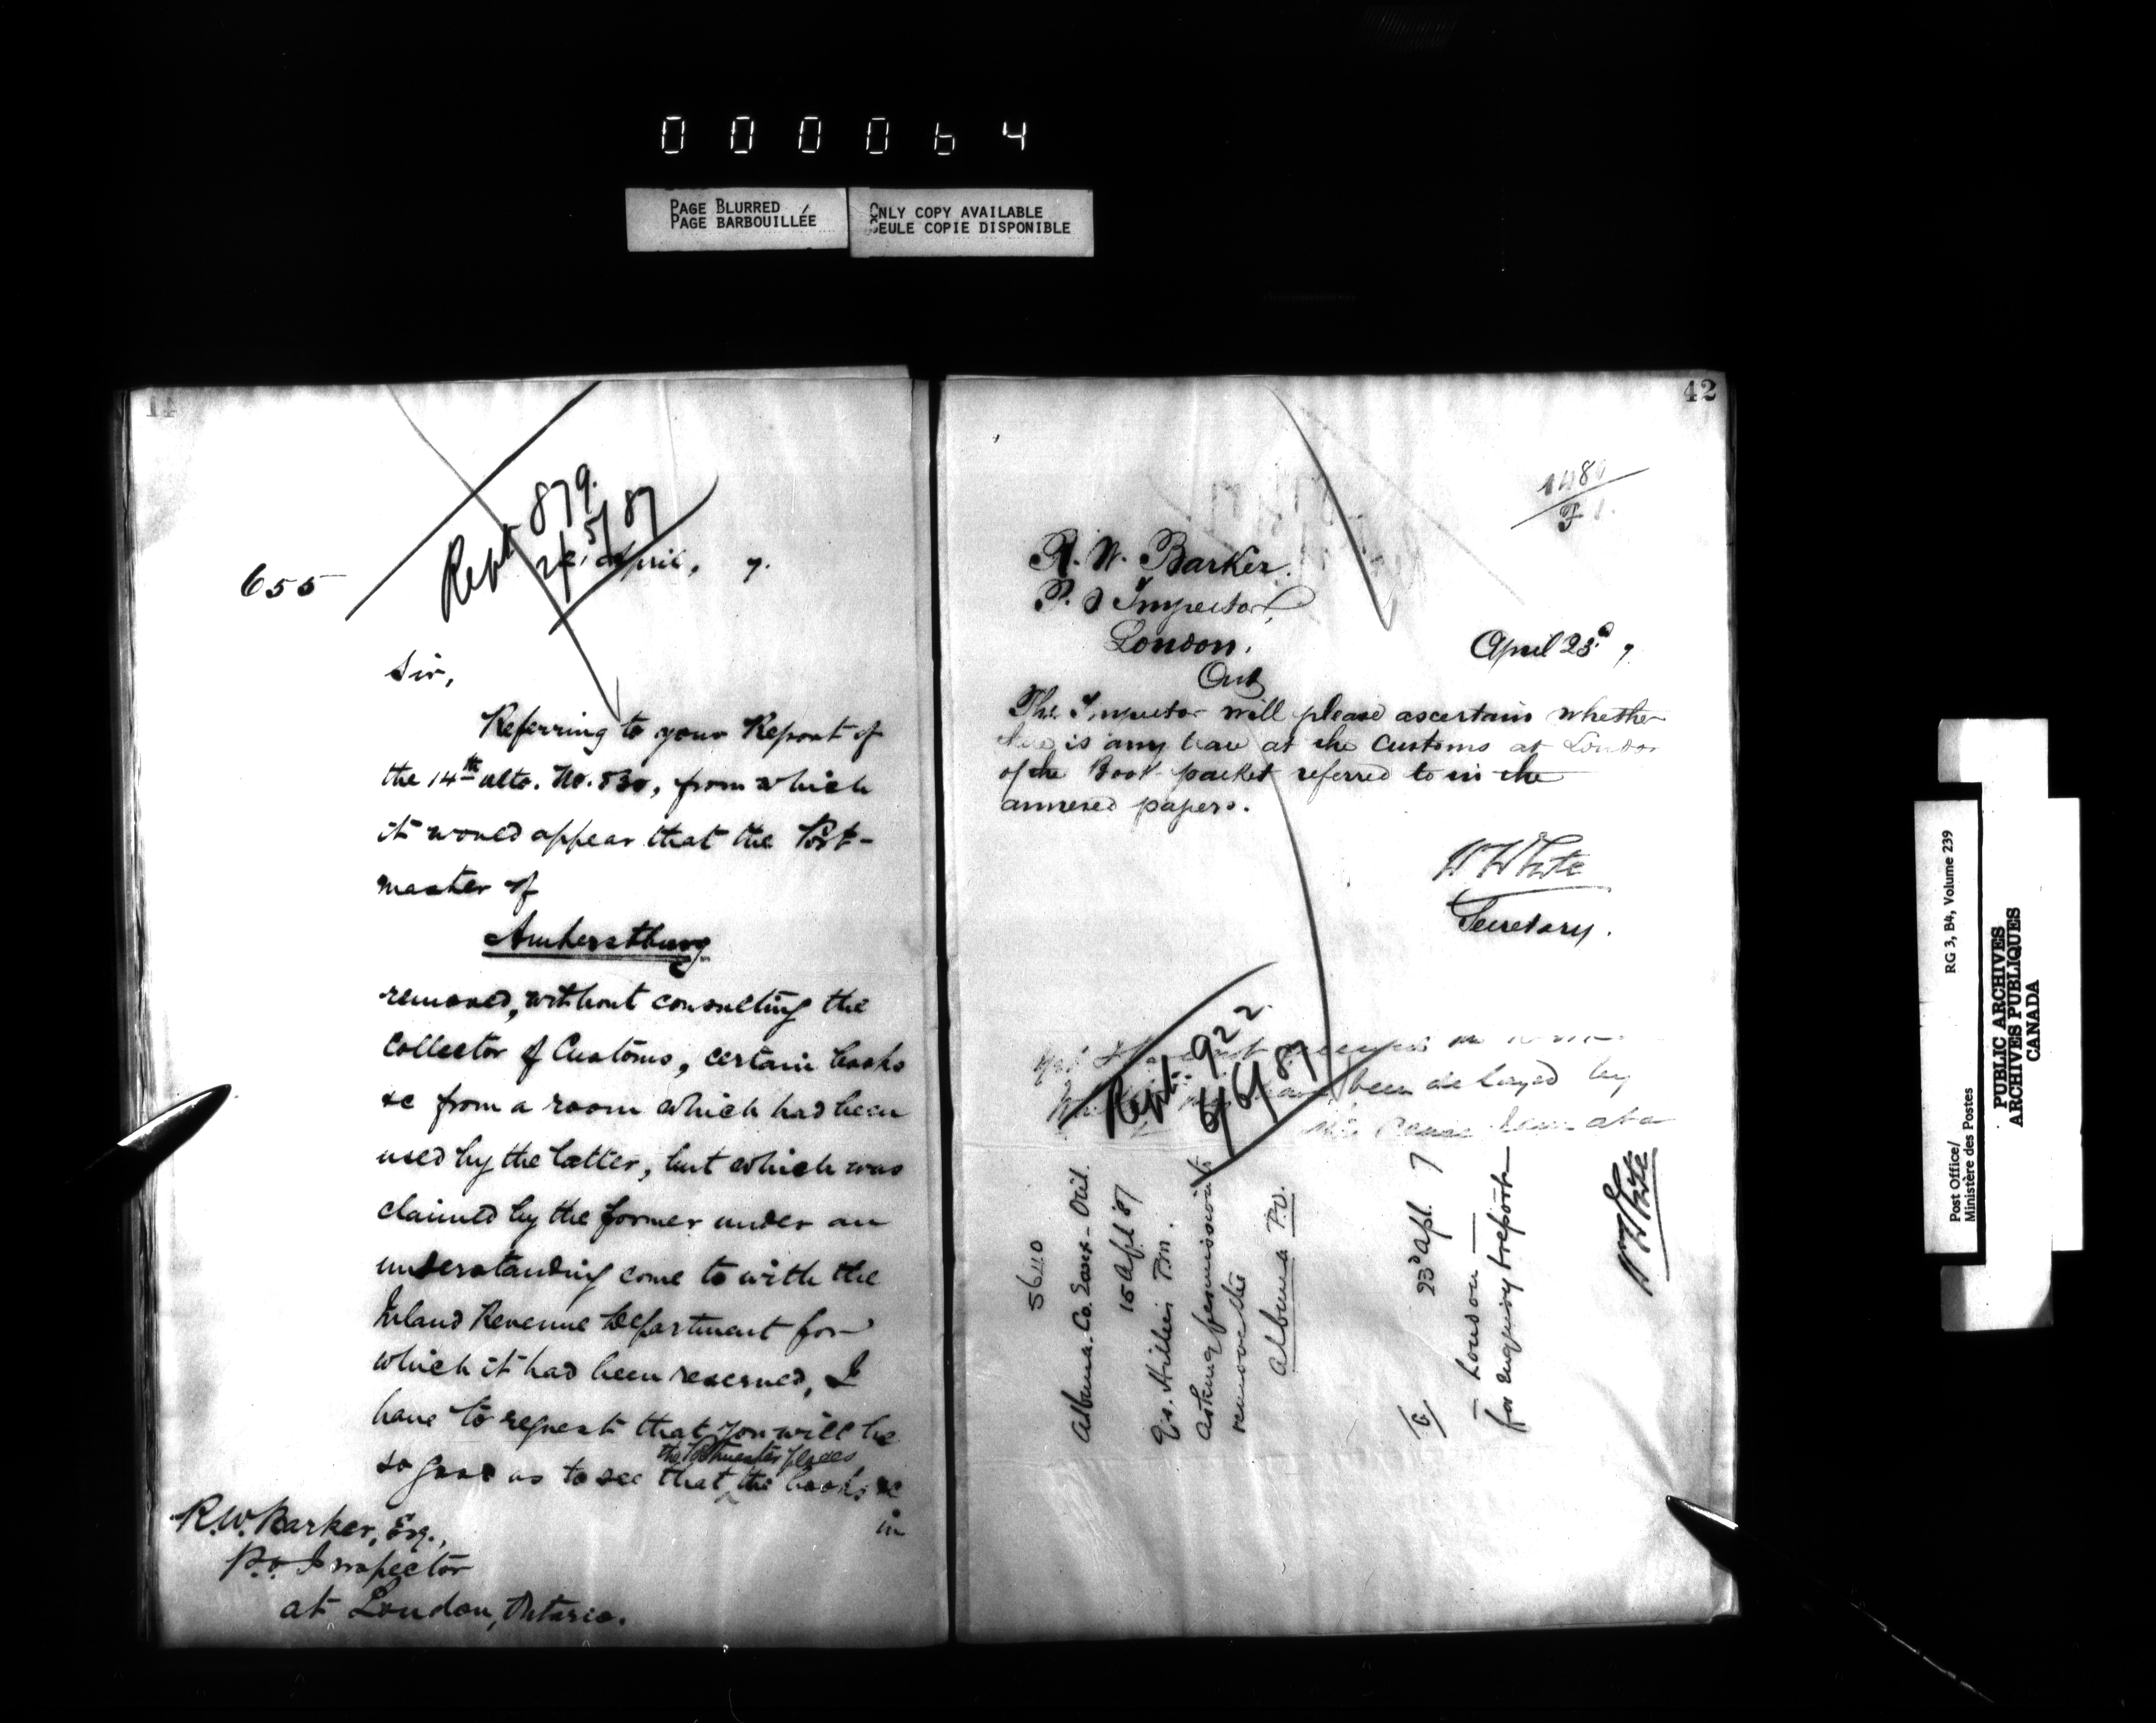 000064
PAGE BLURRED
PAGE BARBOUILLÉE
ONLY COPY AVAILABLE
SEULE COPIE DISPONIBLE
Rept 879.
5/87
655
April, 7.
Sir,
Referring to your Report of
the 14th ulto. No. 830, from which
it would appear that the Post-
master of
Amherstburg
removed, without consulting the
Collector of Customs, certain books
&c from a room which had been
used by the latter, but which was
claimed by the former under an
understanding come to with the
Inland Revenue Department for
which it had been reserved, I
have to request that you will be
the Postmaster places
so good as to see that the books &c
in
R.W. Barker, Esq.,
P.O. Inspector
at London, Ontario.
42
R. W. Barker.
P. O Inspector,
London.
Ont
April 23d 7.
The Inspector will please ascertain whether
there is any trace at the Customs at London
of the Book packet referred to in the
annexed papers.
W White
Secretary.
Rept. 922
6/6/87
been delayed by
56110
Albuna. Co. Essex - Ont.
15 Apl 87
Asking permission to
remove the
Albuna P.O.
23d Apl. 7
London
for enquiry & report
W White
Post Office/
Ministère des Postes
RG 3, B4, Volume 239
PUBLIC ARCHIVES
ARCHIVES PUBLIQUES
CANADA